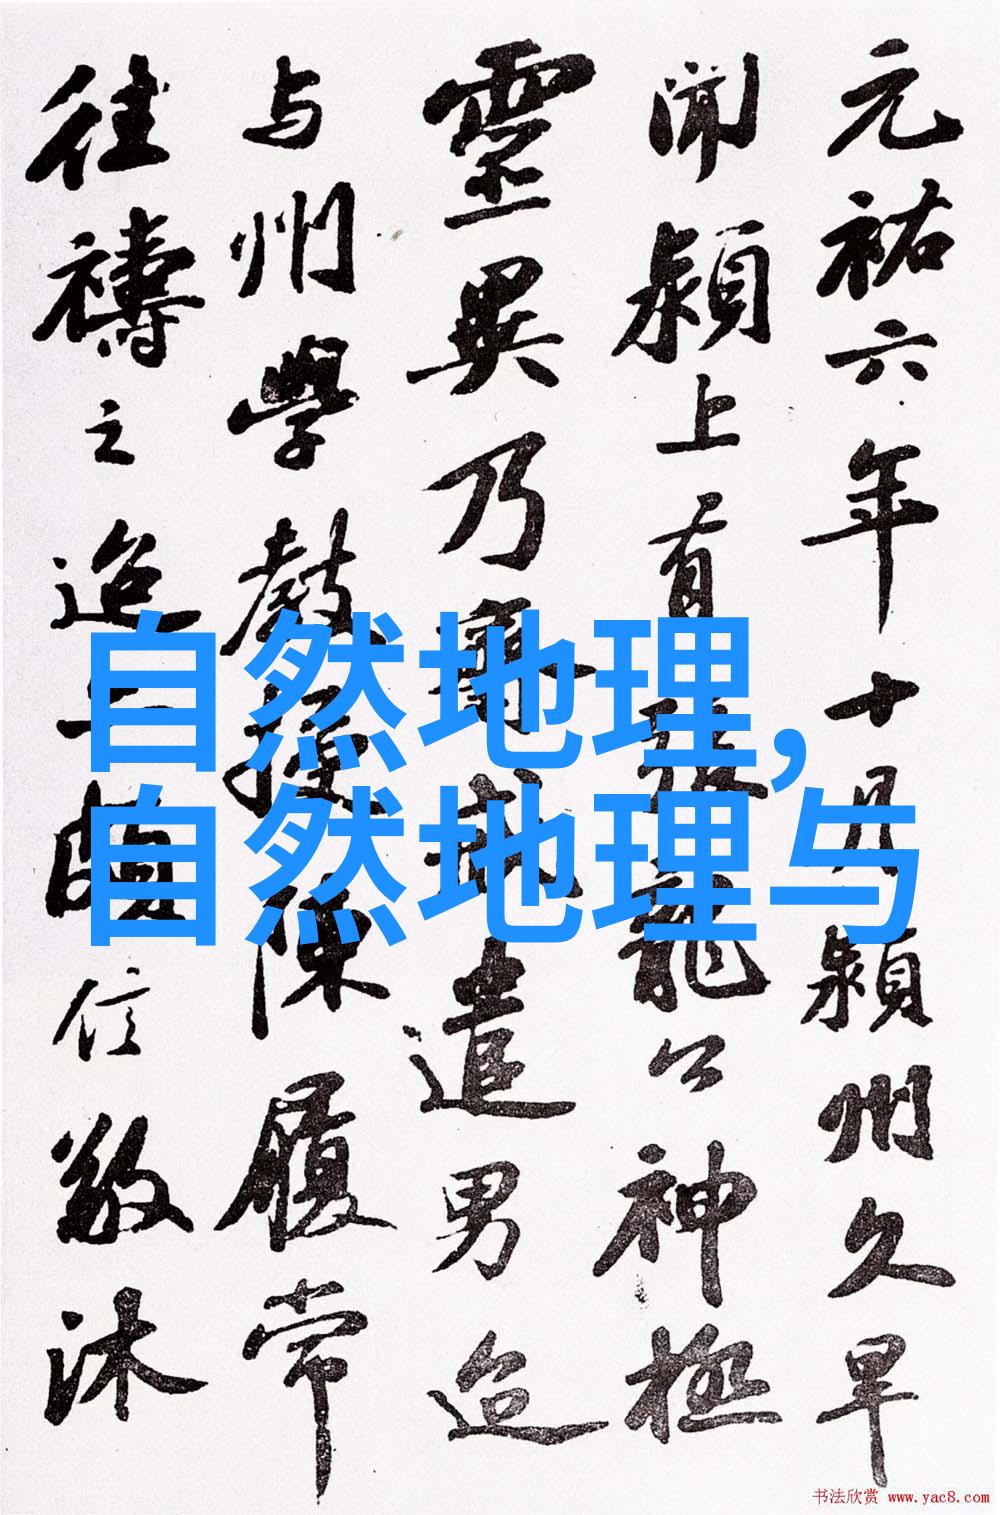 元祐六年十月潁州久旱
聞潁上有張龍公神極
靈異乃齋戒遣男迨
与州學教授陳履常
往禱之迨亦頗信敬沐
自然地理,
自然地理与
书法欣赏 www.yac8.com